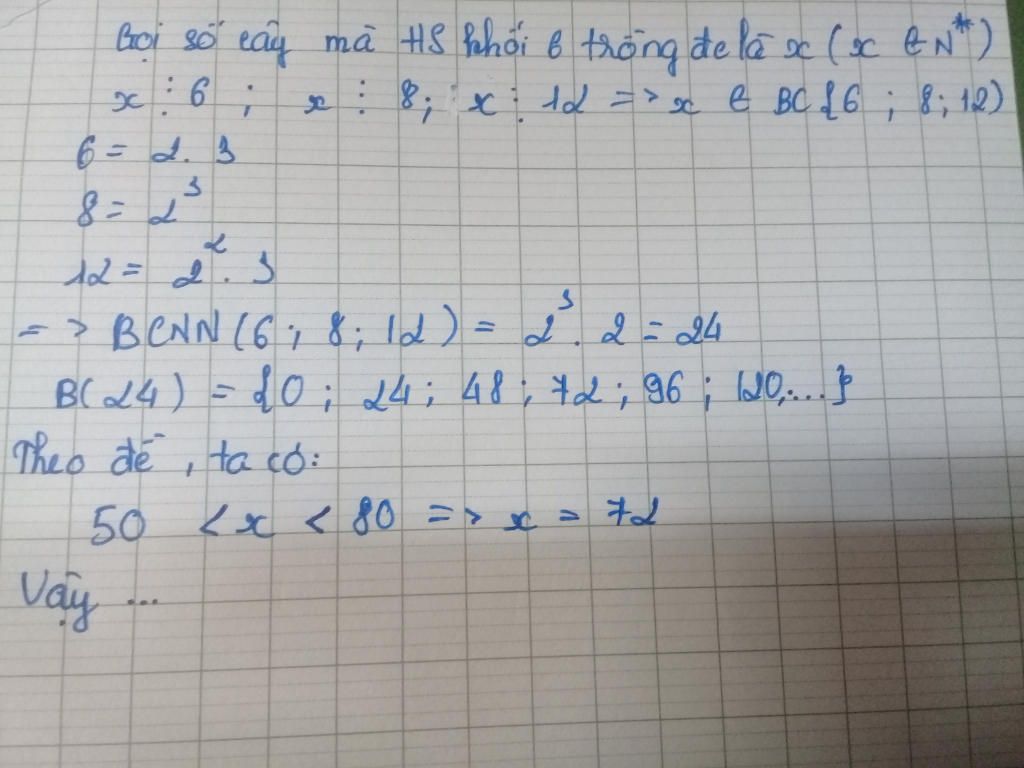 Gọi số cây mà HS khối 6 trồng đc là x (x ∈ N*)
x ⋮ 6 ; x ⋮ 8; x ⋮ 12 => x ∈ BC {6 ; 8; 12)
6 = 2. 3
8 = 2³
12 = 2². 3
=> BCNN (6 ; 8; 12) = 2³. 2 = 24
B(24) = {0; 24; 48; 72; 96; 120,...}
Theo đề, ta có:
50 < x < 80 => x = 72
Vậy ...